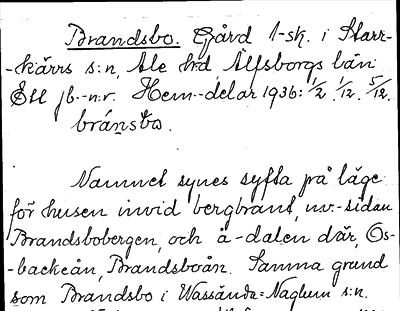 Brandsbo. Gård 1-sk. i Starr-
-kärrs s:n, Ale hrd, Älfsborgs län
Ett jb.-n:r. Hem.-delar 1936: 1/2. 1/12. 5/12.
brånsbo.
Namnet synes syfta på läge
för husen invid bergbrant, nv.-sidan
Brandsbobergen, och å-dalen där, Os-
-backeån, Brandsboån. Samma grund
som Brandsbo i Wassända=Naglum s:n.